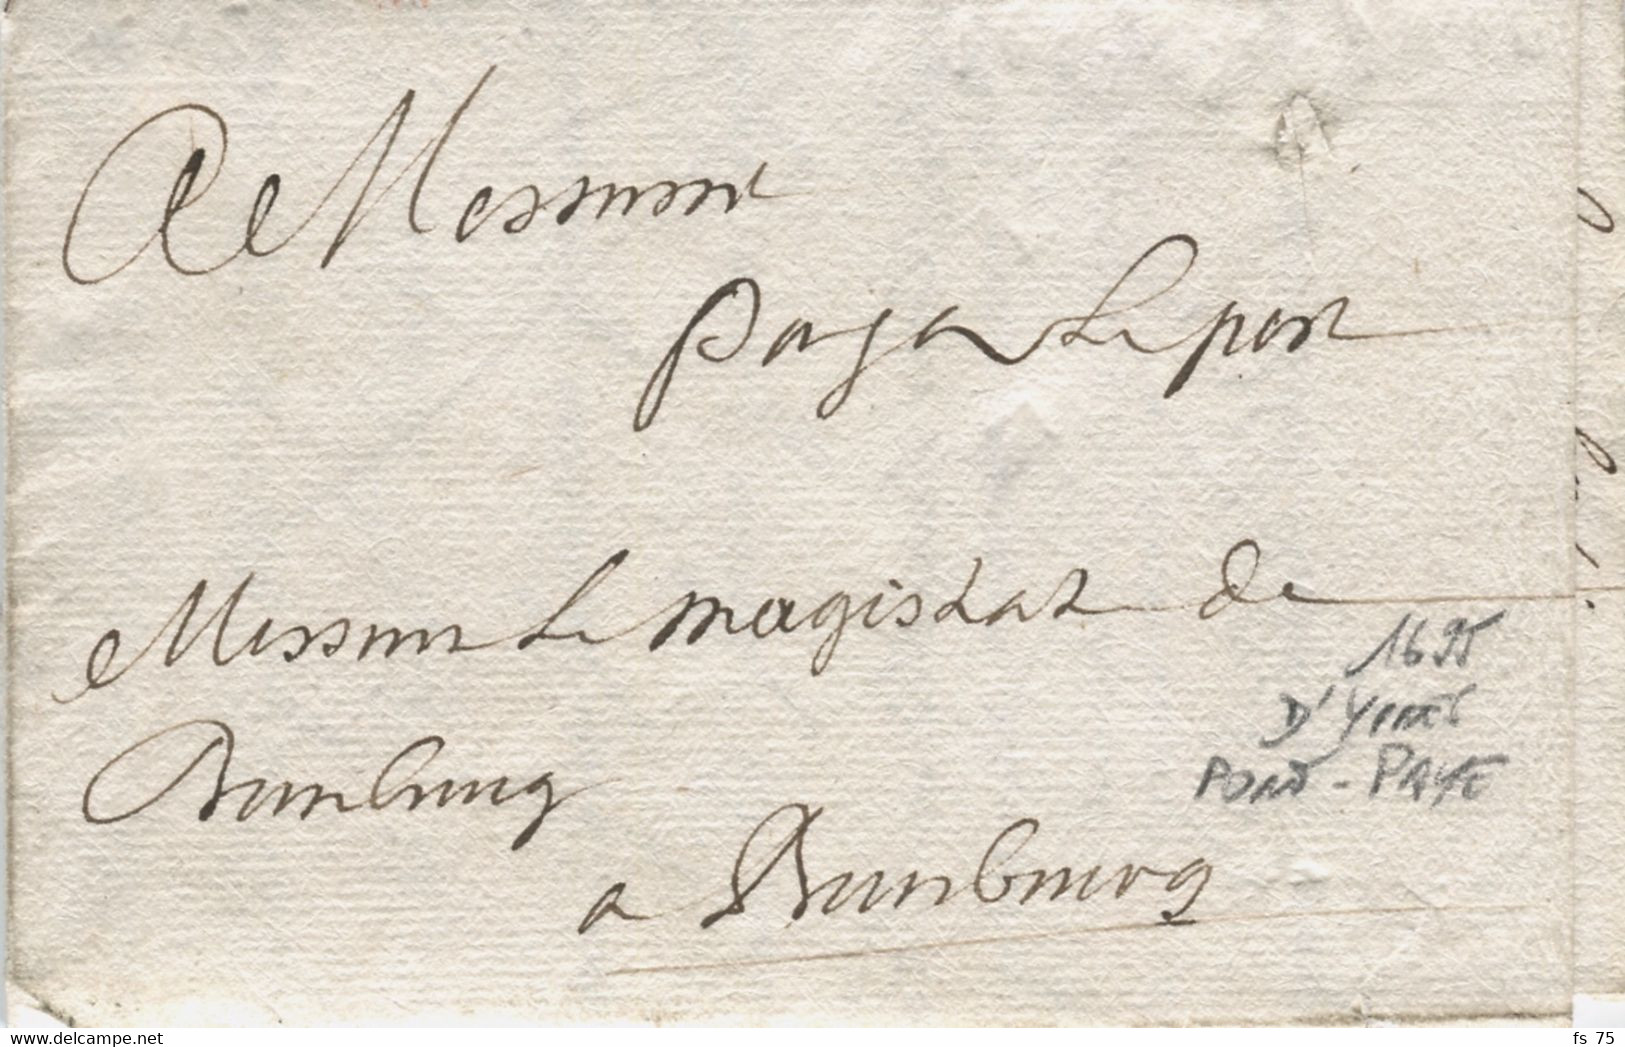 A Messieurs
paye le port
Messieurs le magistrat de
Bourbourg
a Bourbourg
1695
D'Ypres
PORT-PAYE
www.delcampe.net
fs 75